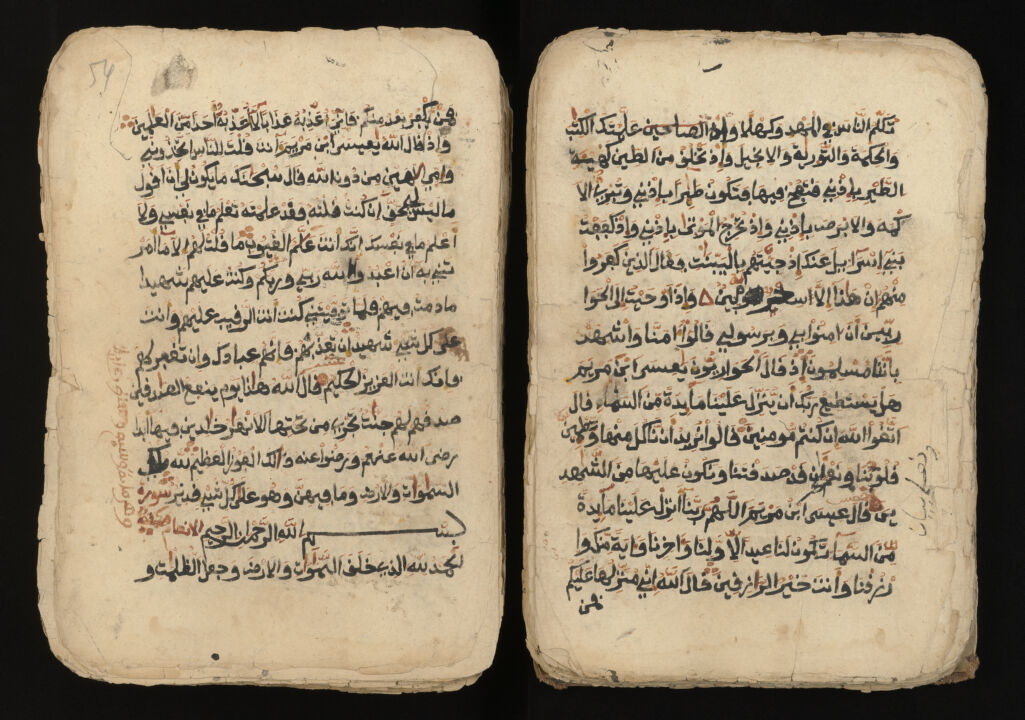 تكلم الناس في المهد وكهلا وإذ علمتك الكتب
والحكمة والتورية والانجيل وإذ تخلق من الطين كهيئة
الطير بإذني فتنفخ فيها فتكون طيرا بإذني وتبرئ الا
كمه والابرص بإذني وإذ تخرج الموتى بإذني وإذ كففت
بني إسرائيل عنك إذ جيتهم بالبينت فقال الذين كفروا
منهم إن هذا إلا سحر مبين وإذ أوحيت إلى الحوا
ريين أن امنوا بي وبرسولي قالوا امنا واشهد
بأننا مسلمون إذ قال الحواريون يعيسى ابن مريم
هل يستطيع ربك أن ينزل علينا مايدة من السماء قال
اتقوا الله إن كنتم مومنين قالوا نريد أن ناكل منها وتطمين
قلوبنا ونعلم أن قد صدقتنا ونكون عليها من الشهد
ين قال عيسى ابن مريم اللهم ربنا أنزل علينا مايدة
من السماء تكون لنا عيدا لاولنا واخرنا واية منك وا
رزقنا وأنت خير الرازقين قال الله إني منزلها عليكم
فمن
54
فمن يكفر بعد منكم فاني أعذبه عذابا لا أعذبه أحدا من العلمين
وإذ قال الله يعيسى ابن مريم أنت قلت للناس اتخذوني
وامي الهين من دون الله قال سبحنك ما يكون لي أن أقول
ما ليس لي بحق إن كنت قلته فقد علمته تعلم ما في نفسي ولا
اعلم ما في نفسك إنك أنت علم الغيوب ما قلت لهم الا ما امر
تني به ان اعبدوا الله ربي وربكم وكنت عليهم شهيدا
ما دمت فيهم فلما توفيتني كنت أنت الرقيب عليهم وأنت
على كل شيء شهيد إن تعذبهم فانهم عبادك وان تغفر لهم
فانك انت العزيز الحكيم قال الله هذا يوم ينفع الصدقين
صدقهم لهم جنت تجري من تحتها الانهر خلدين فيها أبدا
رضي الله عنهم ورضوا عنه ذلك الفوز العظيم لله ملك
السموات والارض وما فيهن وهو على كل شيء قدير سورة
بسم الله الرحمن الرحيم الانعام
الحمد لله الذي خلق السموات والارض وجعل الظلمت و